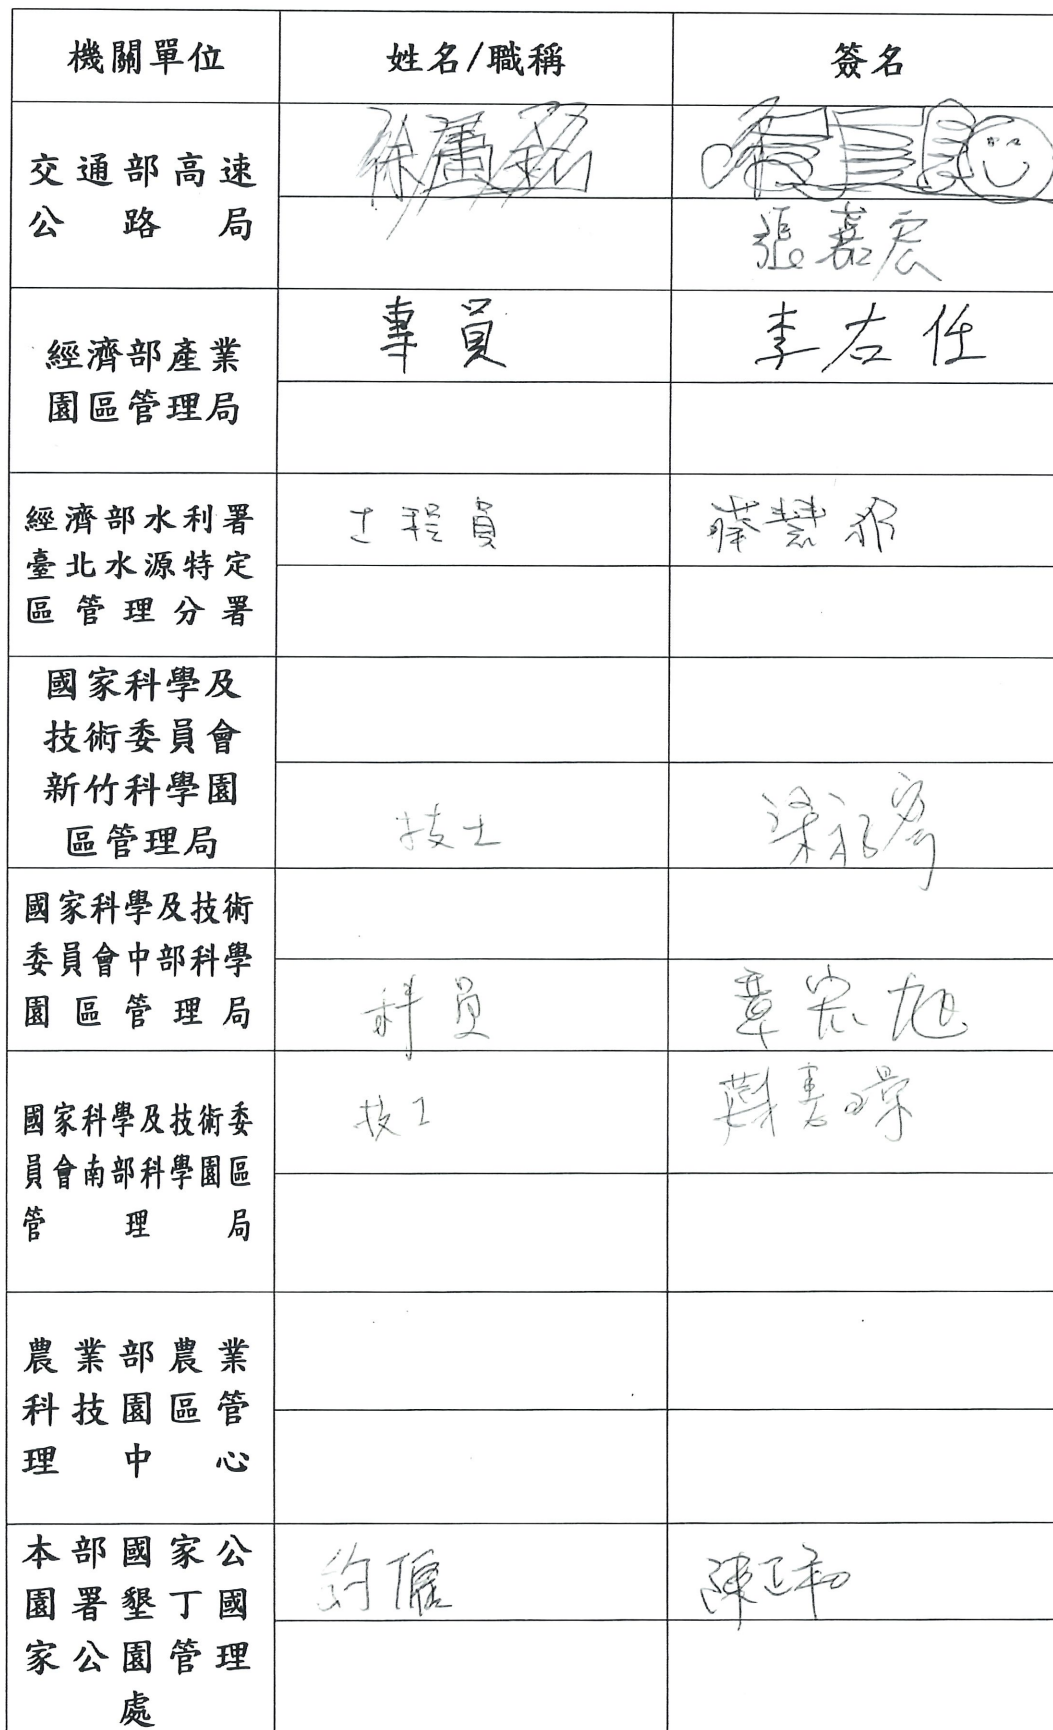 機關單位 姓名/職稱 簽名
交通部高速
公路局
張嘉宏
經濟部產業
園區管理局
專員 李右任
經濟部水利署
臺北水源特定
區管理分署
工程員 蔡慧
國家科學及
技術委員會
新竹科學園
區管理局
技士 梁
國家科學及技術
委員會中部科學
園區管理局
科員 章宏旭
國家科學及技術委
員會南部科學園區
管理局
技工
農業部農業
科技園區管
理中心
本部國家公
園署墾丁國
家公園管理
處
約僱 陳正和